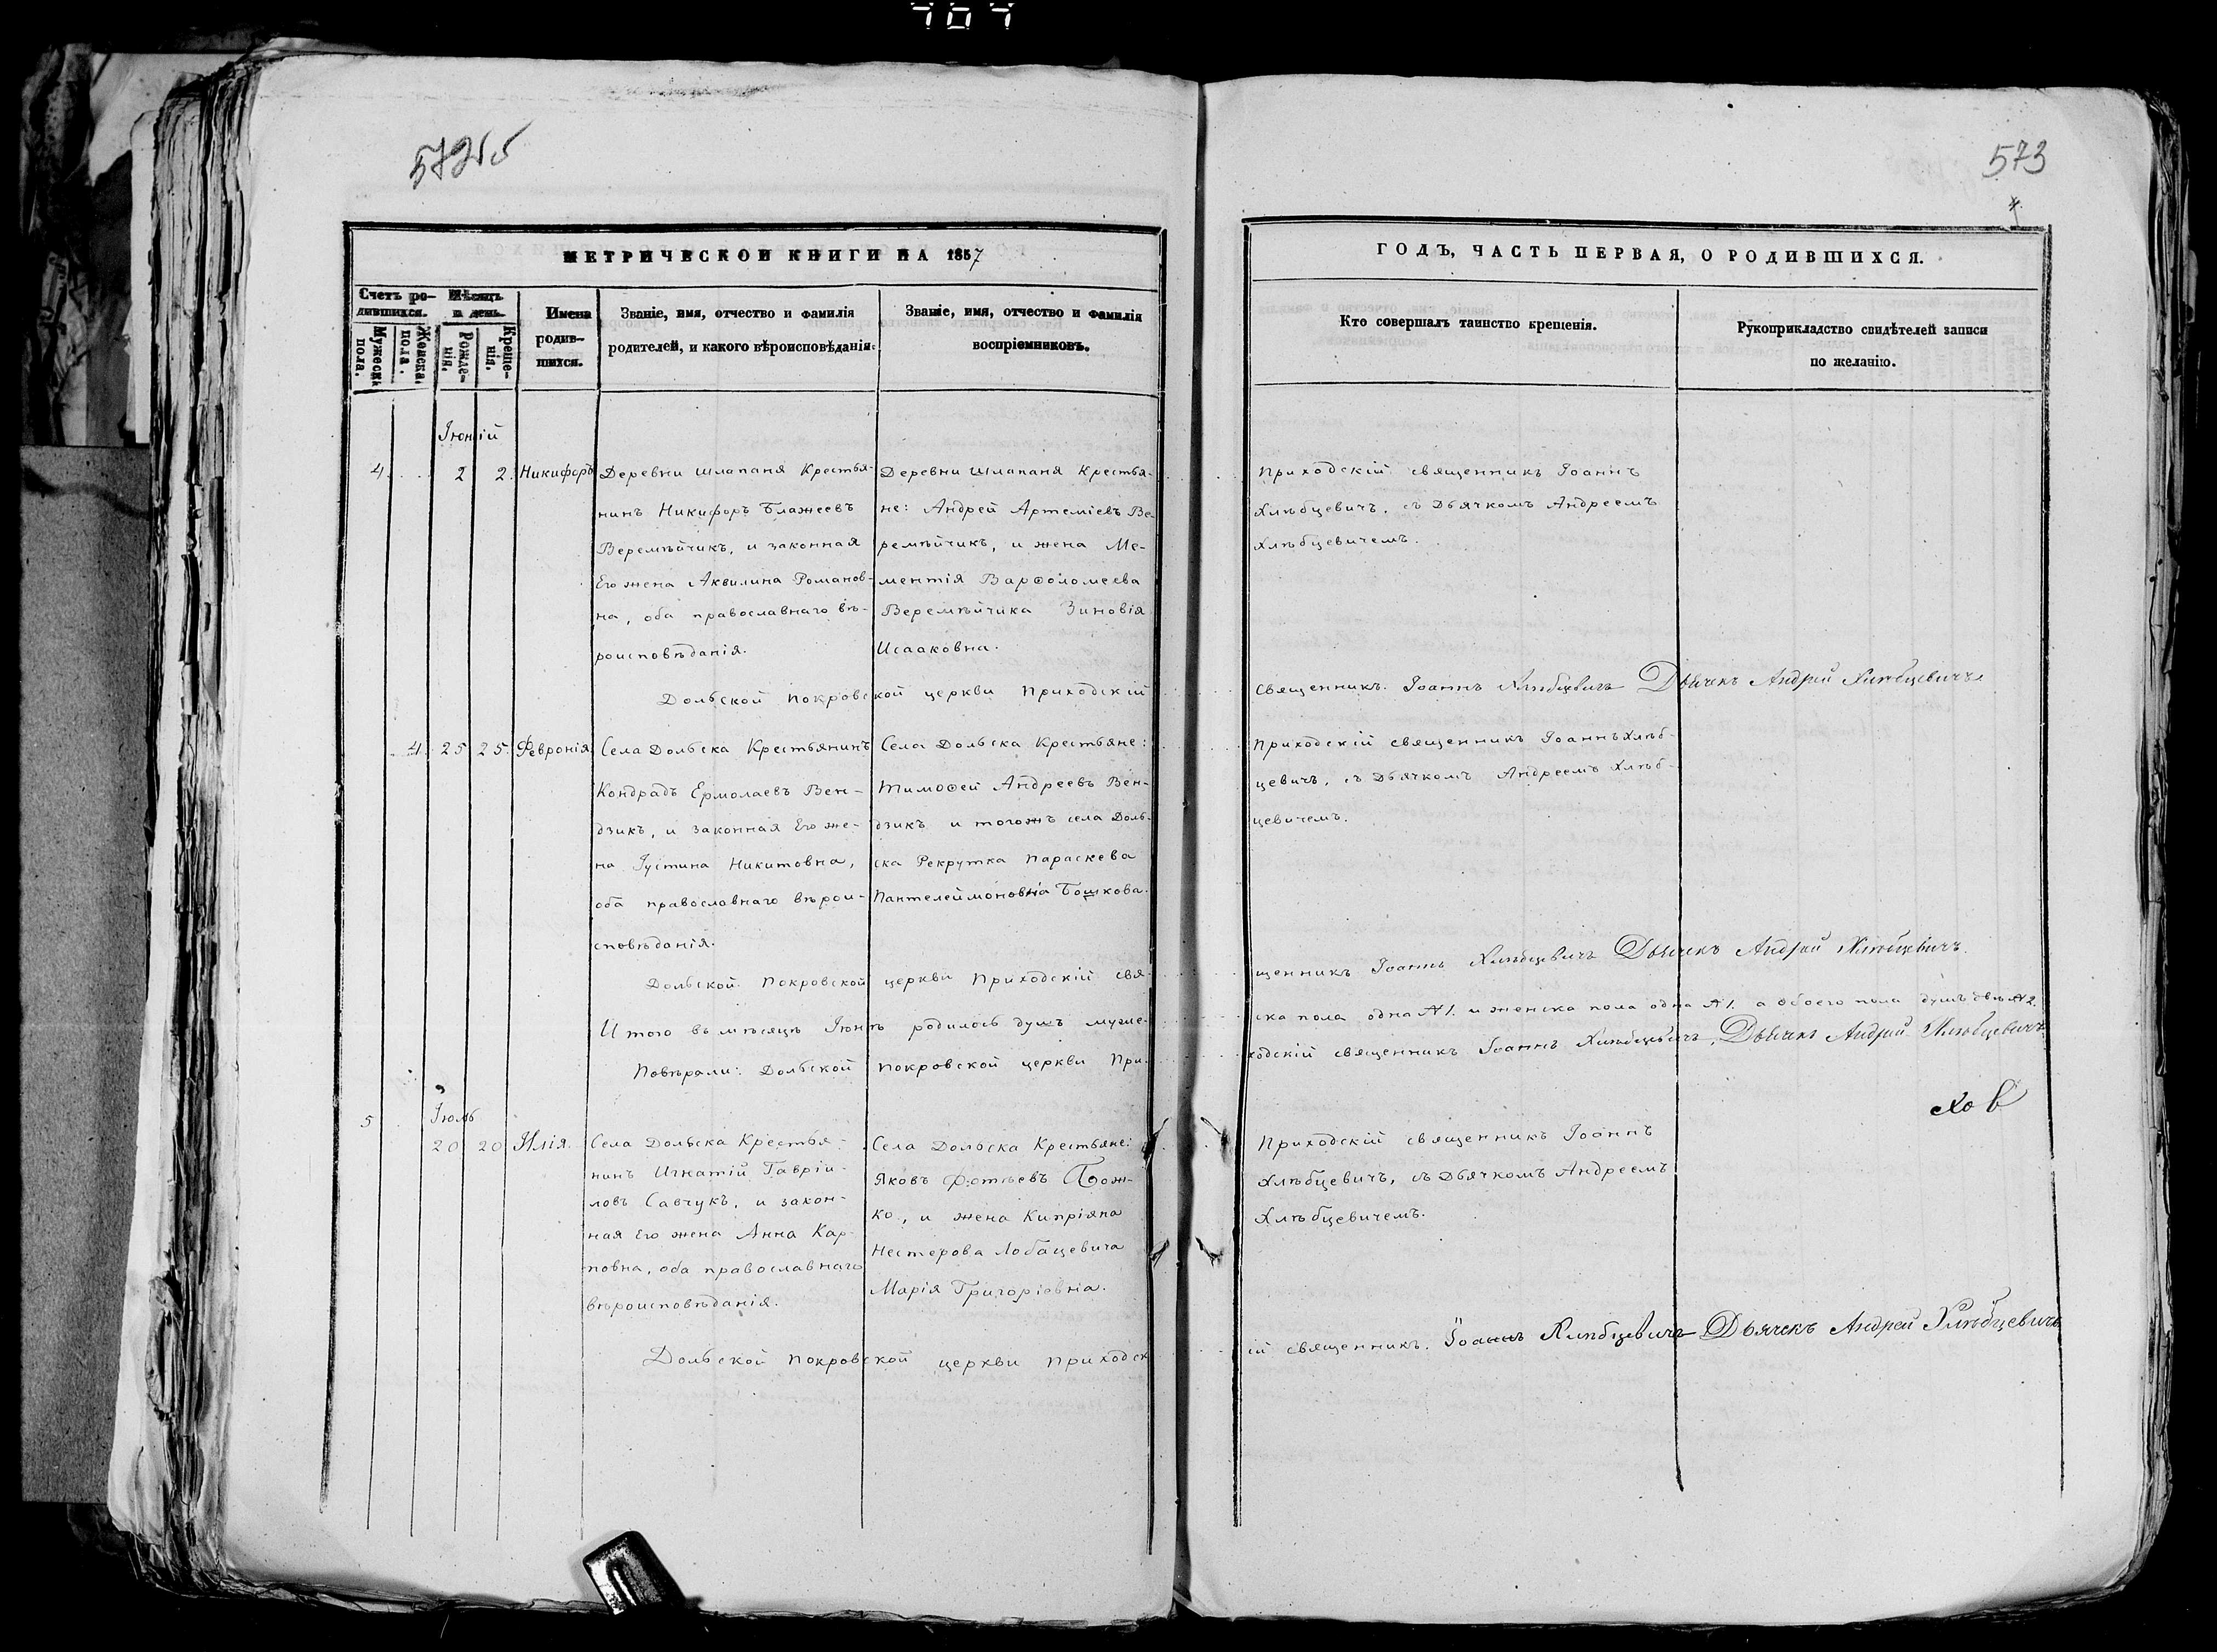 707
572об
573
МЕТРИЧЕСКОЙ КНИГИ НА 1857
ГОДЪ, ЧАСТЬ ПЕРВАЯ, О РОДИВШИХСЯ.
Счетъ родившихся.
Мужеска пола.
Женска. пола.
Мѣсяцъ и день.
Рожденія.
Крещенія.
Имена родившихся.
Званіе, имя, отчество и фамилія
родителей, и какого вѣроисповѣданія.
Званіе, имя, отчество и фамилія
воспріемниковъ.
Кто совершалъ таинство крещенія.
Рукоприкладство свидѣтелей записи
по желанію.
Іюній
4. 2 2. Никифоръ
Деревни Шлапаня Крестья-
нинъ Никифоръ Блажеевъ
Веремѣйчикъ, и законная
Его жена Аквилина Романов-
на, оба православнаго вѣ-
роисповѣданія.
Деревни Шлапаня Крестья-
не: Андрей Артеміевъ Ве-
ремѣйчикъ, и жена Ме-
ментія Варѳоломеева
Веремѣйчика Зиновія
Исааковна.
Приходскій священникъ Іоаннъ
Хлѣбцевичъ, съ Дьячкомъ Андреемъ
Хлѣбцевичемъ.
Дольской Покровской церкви Приходскій Священникъ. Іоаннъ Хлѣбцевичъ Дьячекъ Андрей Хлѣбцевичъ
4. 25 25. Февронія.
Села Дольска Крестьянинъ
Кондрадъ Ермолаевъ Вен-
дзикъ, и законная Его же-
на Іустина Никитовна,
оба православнаго вѣрои-
сповѣданія.
Села Дольска Крестьяне:
Тимоѳей Андреевъ Вен-
дзикъ и тогожъ села Доль-
ска Рекрутка Параскева
Пантелеймоновна Бошкова.
Приходскій священникъ Іоаннъ Хлѣб-
цевичъ, съ Дьячкомъ Андреемъ Хлѣб-
цевичемъ.
Дольской Покровской церкви Приходскій свя-щенникъ Іоаннъ Хлѣбцевичъ Дьячекъ Андрей Хлѣбцевичъ.
Итого въ мѣсяцѣ Іюнѣ родилось душъ муже-ска пола одна № 1. и женска пола одна № 1. а обоего пола душъ двѣ № 2.
Повѣрали: Дольской Покровской церкви При-ходскій священникъ Іоаннъ Хлѣбцевичъ, Дьячекъ Андрей Хлѣбцевичъ
Іюль
5 20 20 Илія.
Села Дольска Крестья-
нинъ Игнатій Гавріи-
ловъ Савчукъ, и закон-
ная Его жена Анна Кар-
повна, оба православнаго
вѣроисповѣданія.
Села Дольска Крестьяне:
Яковъ Фотіевъ Бож-
ко, и жена Кипріяна
Нестерова Лобацевича
Марія Григоріевна.
Приходскій священникъ Іоаннъ
Хлѣбцевичъ, съ Дьячкомъ Андреемъ
Хлѣбцевичемъ.
Дольской Покровской церкви Приходскій священникъ. Іоаннъ Хлѣбцевичъ Дьячекъ Андрей Хлѣбцевичъ